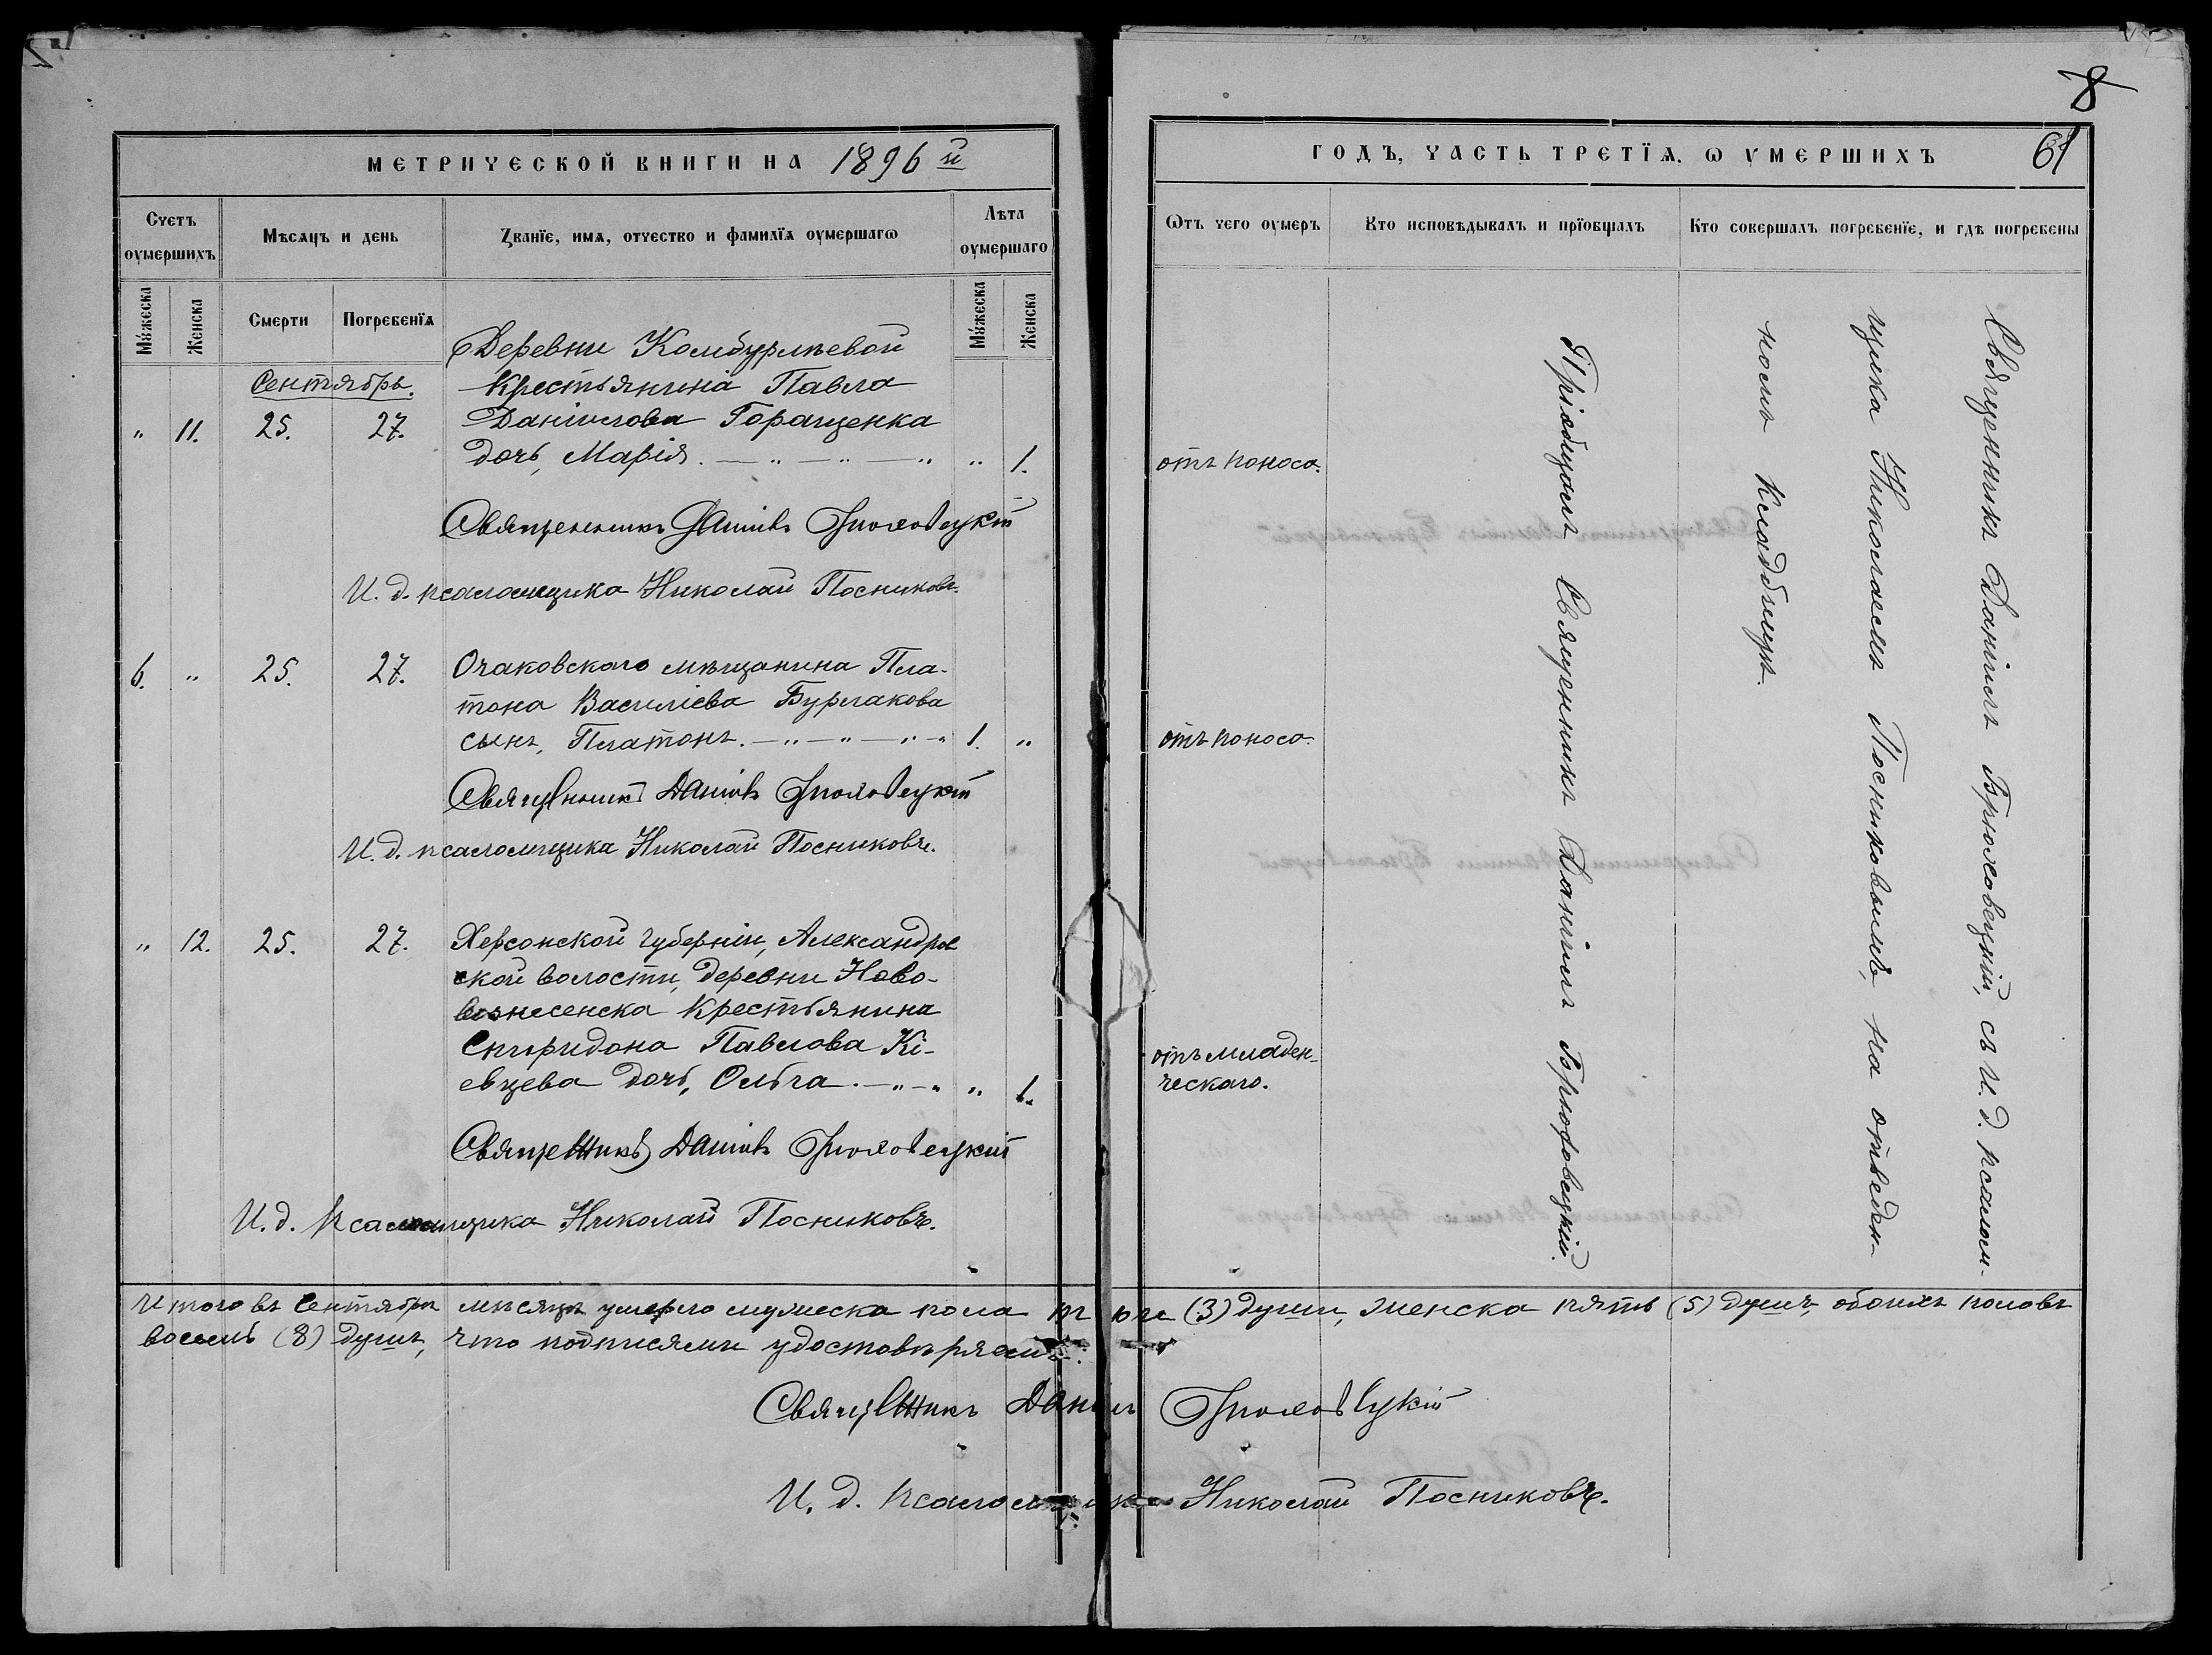 МЕТРИЧЕСКОЙ КНИГИ НА 1896 й
Счетъ оумершихъ
Мѣсяцъ и день
Званіе, имя, отчество и фамилія оумершагω
Лѣта оумершаго
Мужеска
Женска
Смерти
Погребенія
Мужеска
Женска
Деревни Комбурлѣевой
Сентябрь. Крестьянина Павла
" 11. 25. 27. Даніилова Горащенка
дочь, Марія. — " — " — " " 1.
Священникъ Даніилъ Брюховецкій
И. д. псаломщика Николай Посниковъ.
6. " 25. 27. Очаковскаго мѣщанина Пла-
тона Василіева Бурлакова
сынъ, Платонъ. — " — " — " — " 1. "
Священникъ Даніилъ Брюховецкій
И. д. псаломщика Николай Посниковъ.
" 12. 25. 27. Херсонской губерніи, Александров
ской волости, деревни Ново-
вознесенска крестьянина
Спиридона Павлова Кі-
евцева дочь, Ольга. — " — " " 1.
Священникъ Даніилъ Брюховецкій
И. д. Псаломщика Николай Посниковъ.
8
ГОДЪ, ЧАСТЬ ТРЕТІЯ, Ѡ УМЕРШИХЪ 61
Ѡтъ чего оумеръ
Кто исповѣдывалъ и пріобщалъ
Кто совершалъ погребеніе, и гдѣ погребены
отъ поноса.
отъ поноса.
отъ младен-
ческаго.
Пріобщалъ Священникъ Даніилъ Брюховецкій.
Священникъ Даніилъ Брюховецкій, съ И. д. псалом-
щика Николаемъ Посниковымъ, на отведен-
номъ кладбищѣ.
Итого въ Сентябрѣ мѣсяцѣ умерло мужеска пола (3) души, женска пять (5) душъ, обоихъ половъ
восемь (8) душъ, что подписями удостовѣряемъ:
Священникъ Даніилъ Брюховецкій
И. д. псаломщика Николай Посниковъ.